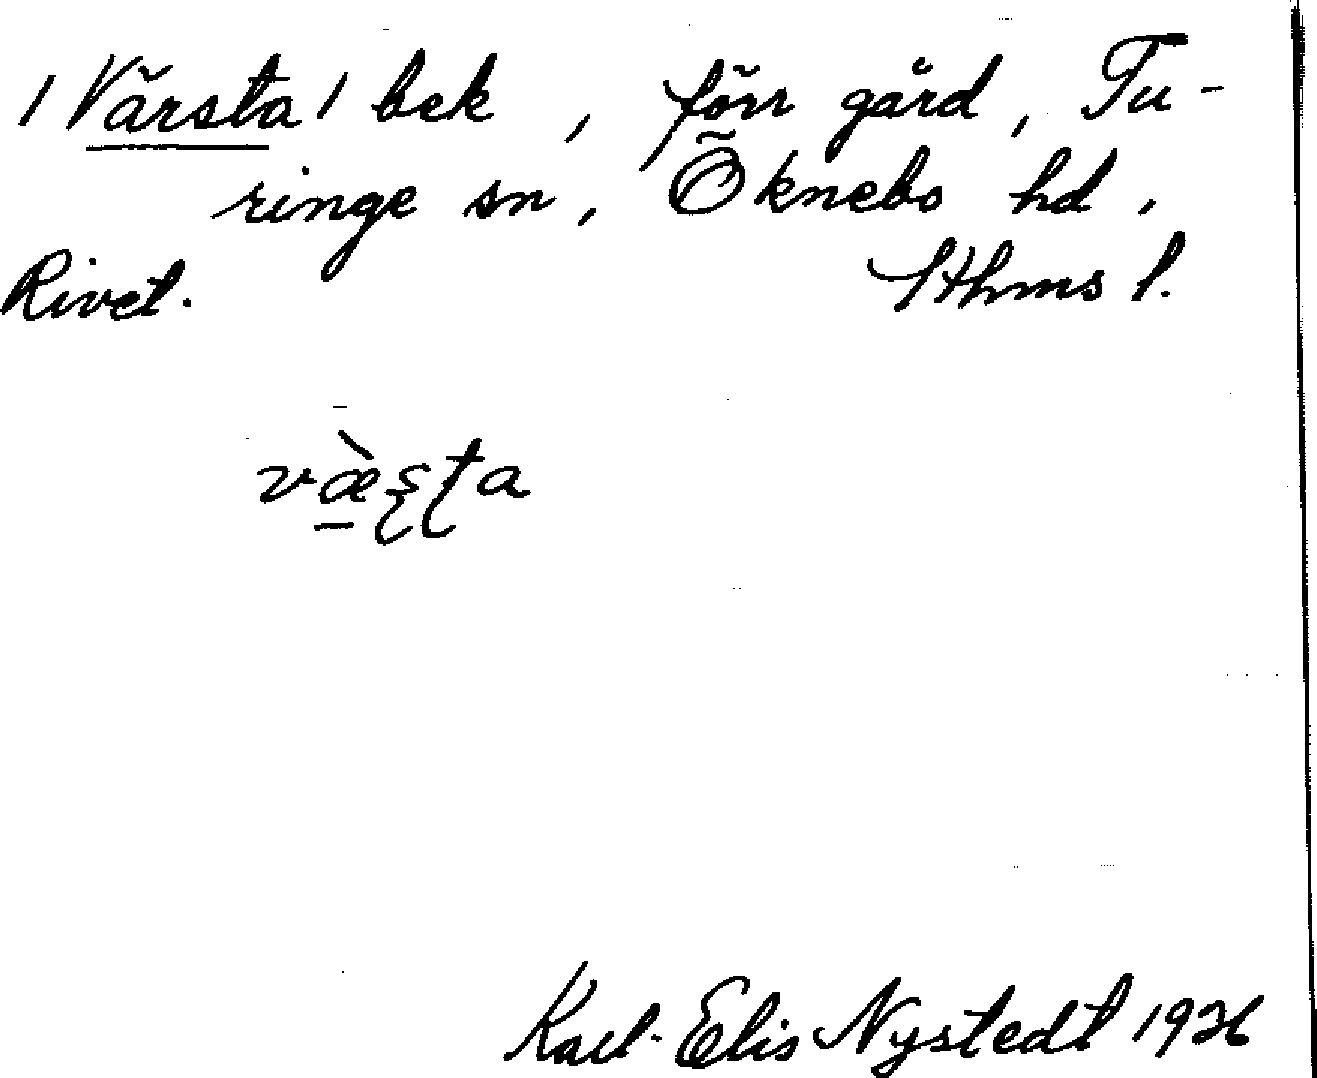 /Vårsta/ bek, förr gård, Tu-
ringe sn, Öknebo hd,
Rivet. Sthms l.
væ̀ʂʈa
Karl-Elis Nystedt 1926